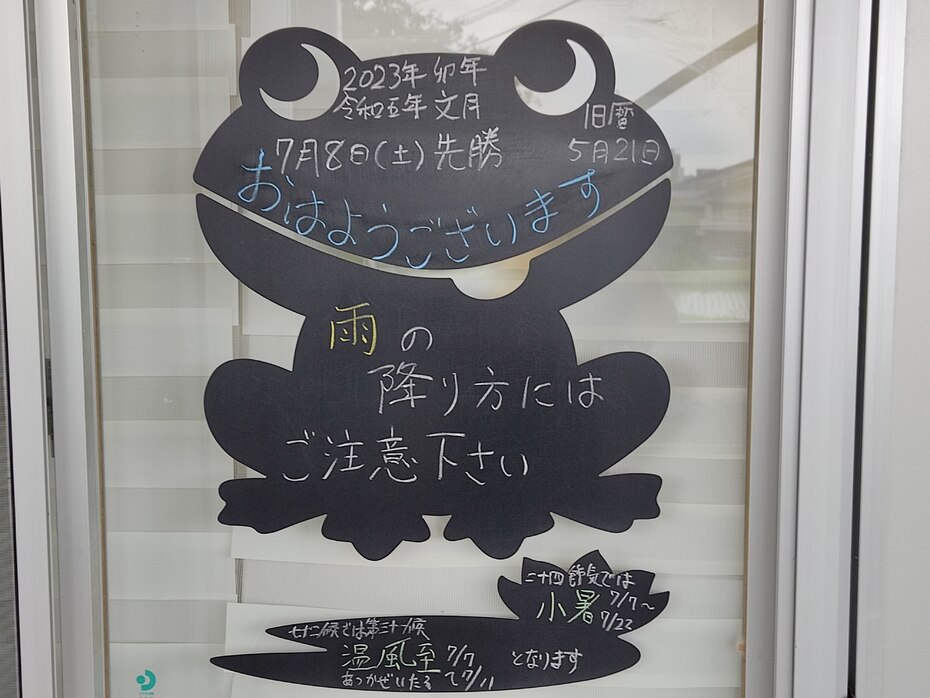 2023年 卯年
令和五年 文月
旧暦
7月8日(土)先勝
5月21日
おはようございます
雨の
降り方には
ご注意下さい
二十四節気では
小暑 7/7～
7/22
七十二候では第三十一候
温風至 7/7
あつかぜいたる
～7/11
となります